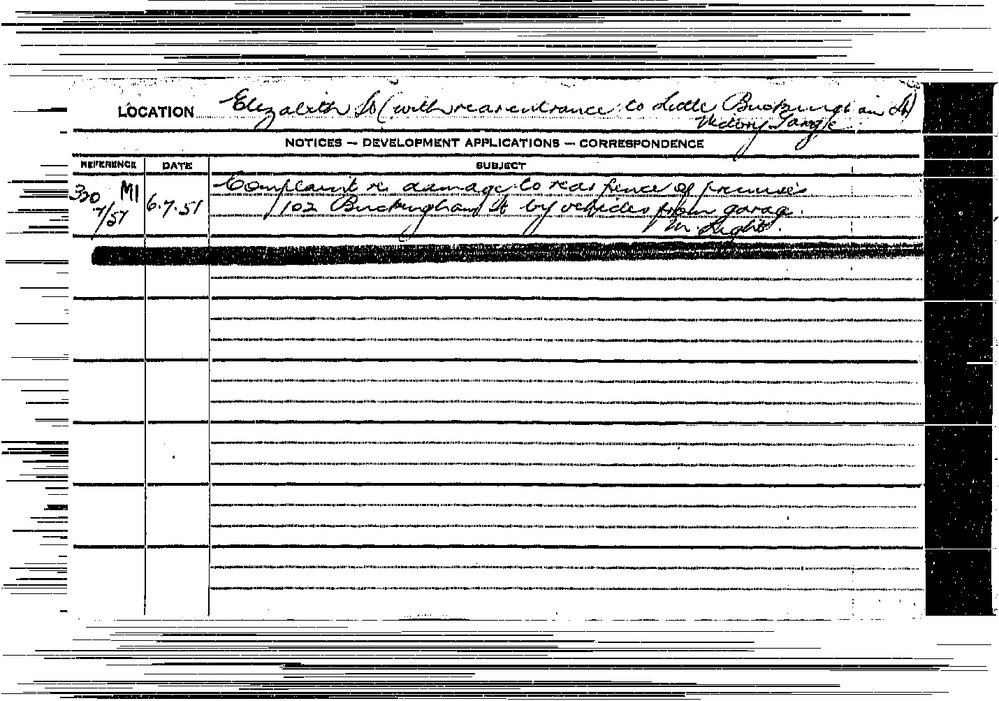 LOCATION Elizabeth St (with rear entrance to Little Buckingham St)
Victory Garage
NOTICES — DEVELOPMENT APPLICATIONS — CORRESPONDENCE
REFERENCE DATE SUBJECT
330 M1 6.7.51 Complaint re damage to rear fence of premises
7/51 102 Buckingham St by vehicles from garage.
M. Light.